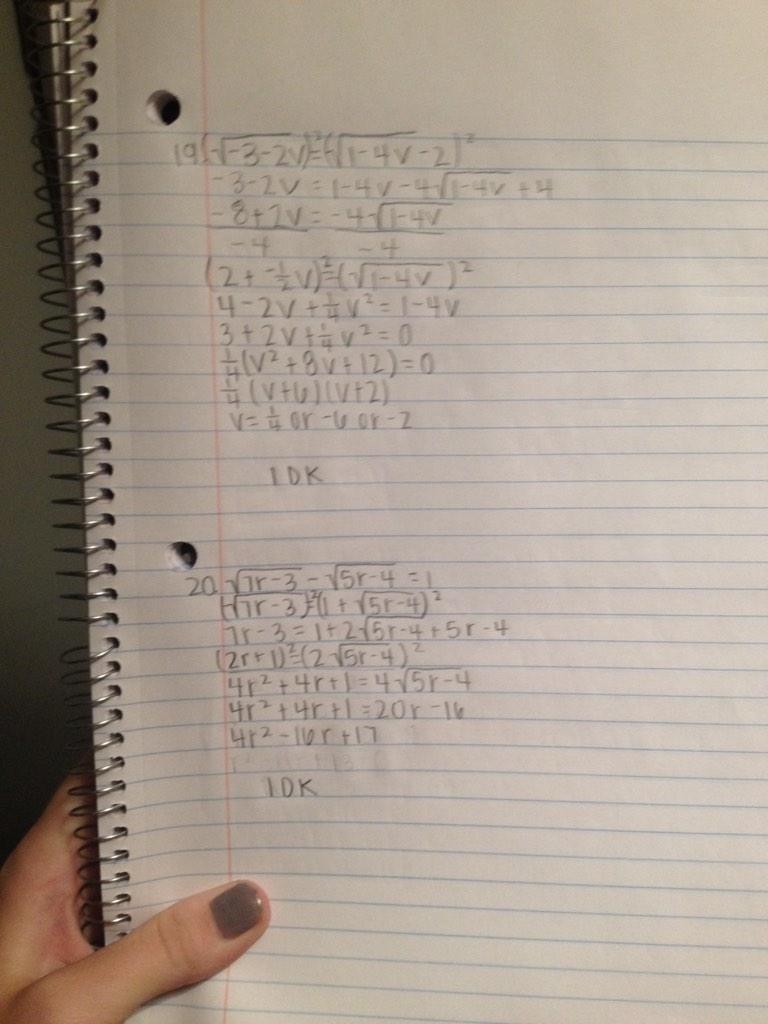 19 (√-3-2v)²=(√1-4v-2)²
-3-2v = 1-4v-4√1-4v +4
-8+2v = -4√1-4v
-4 -4
(2+-½v)²=(√1-4v)²
4-2v+¼v² = 1-4v
3+2v+¼v²=0
¼(v²+8v+12)=0
¼(v+6)(v+2)
v=¼ or -6 or -2
IDK
20 √7r-3 - √5r-4 = 1
(√7r-3)²=(1+√5r-4)²
7r-3 = 1+2√5r-4+5r-4
(2r+1)²=(2√5r-4)²
4r²+4r+1=4√5r-4
4r²+4r+1=20r-16
4r²-16r+17
IDK